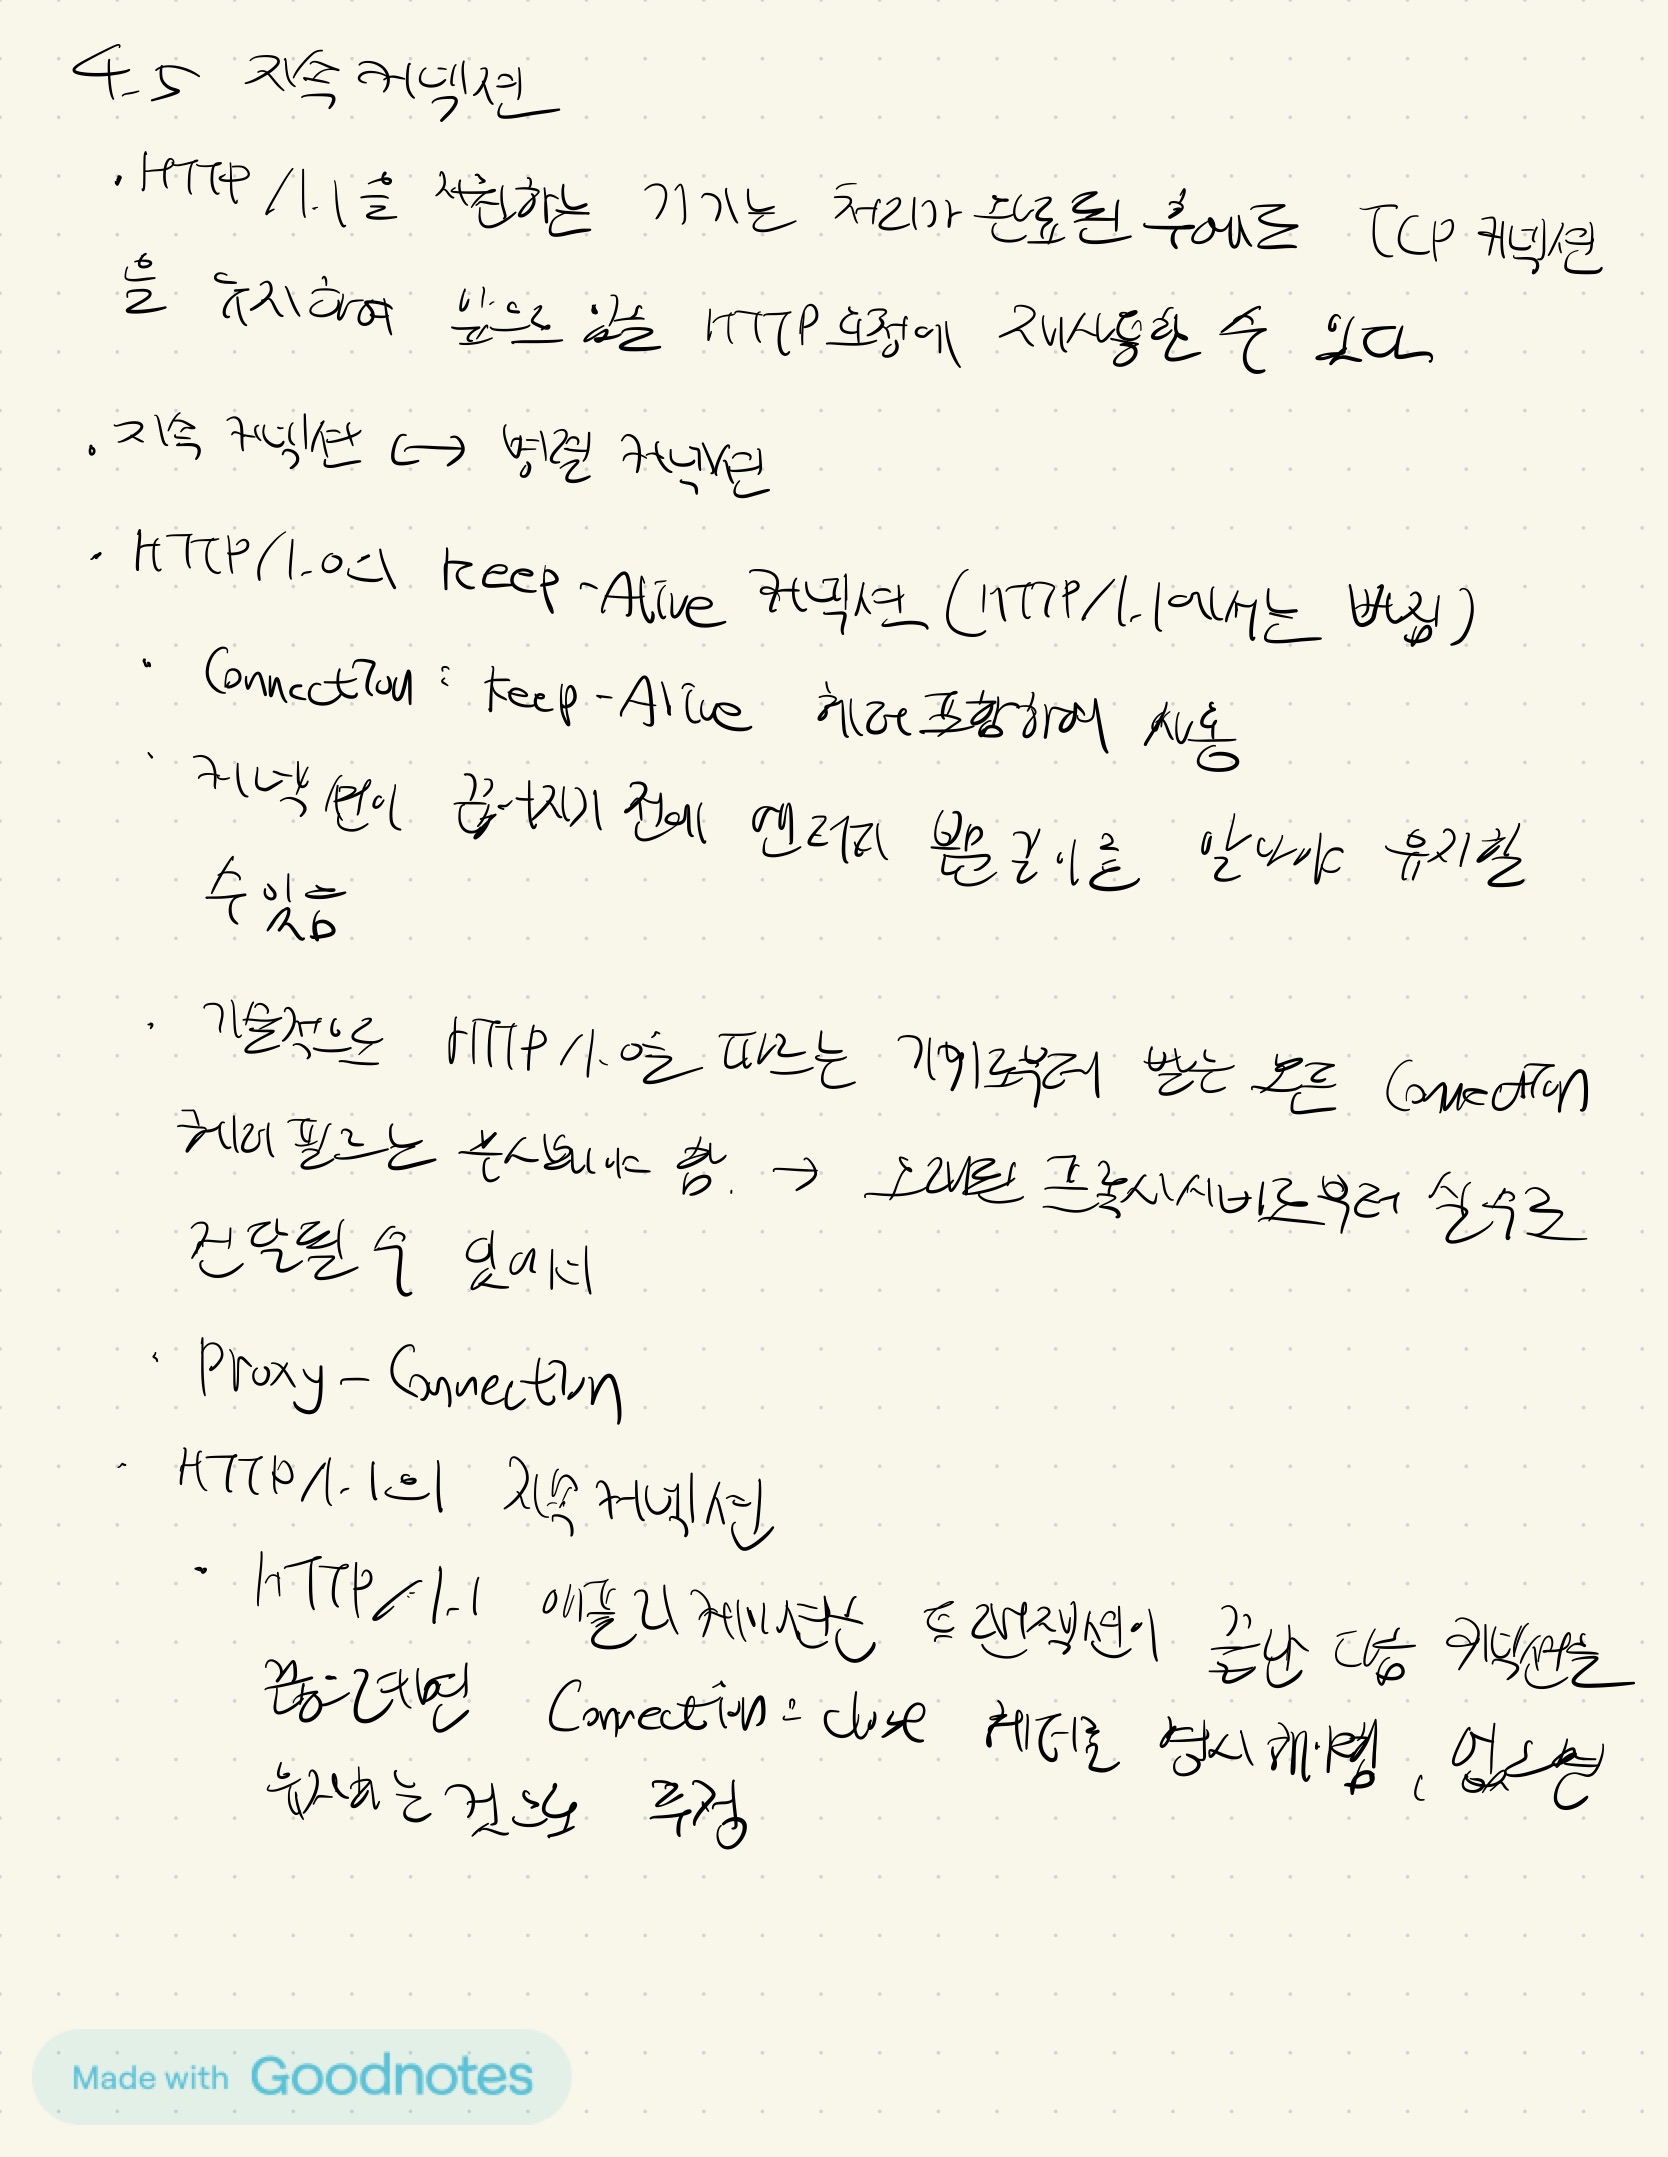 4.5 지속 커넥션
· HTTP/1.1을 지원하는 기기는 처리가 완료된 후에도 TCP 커넥션
을 유지하여 앞으로 있을 HTTP 요청에 재사용할 수 있다
· 지속 커넥션 ↔ 병렬 커넥션
· HTTP/1.0의 Keep-Alive 커넥션 (HTTP/1.1에서는 빠짐)
· Connection: Keep-Alive 헤더 포함하여 사용
· 커넥션이 끊어지기 전에 엔터티 본문 길이를 알아야 유지할
수 있음
· 기술적으로 HTTP/1.0을 따르는 기기로부터 받는 모든 Connection
헤더 필드는 무시해야 함. → 오래된 프락시 서버로부터 실수로
전달될 수 있어서
· Proxy-Connection
· HTTP/1.1의 지속 커넥션
· HTTP/1.1 애플리케이션은 트랜잭션이 끝난 다음 커넥션을
끊으려면 Connection: close 헤더를 명시해야함, 없으면
유지되는 것으로 추정
Made with Goodnotes